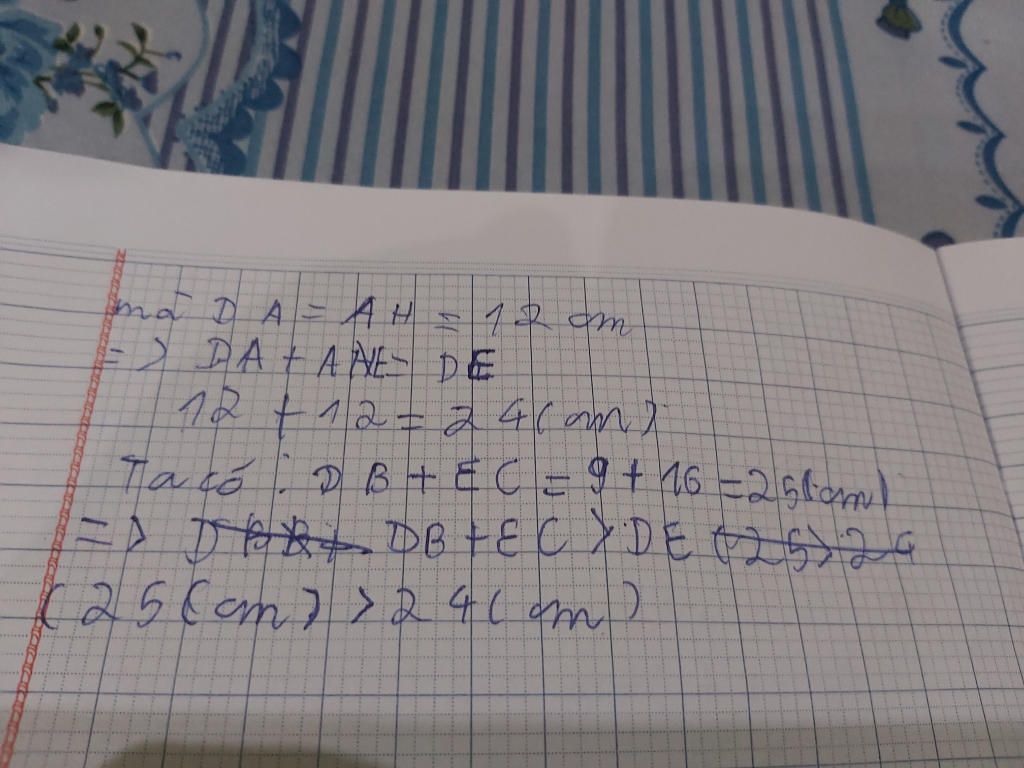 mà DA = AH = 12 cm
=> DA + AE = DE
12 + 12 = 24 (cm)
Ta có : DB + EC = 9 + 16 = 25 (cm)
=> DB + EC > DE
(25 (cm) > 24 (cm)